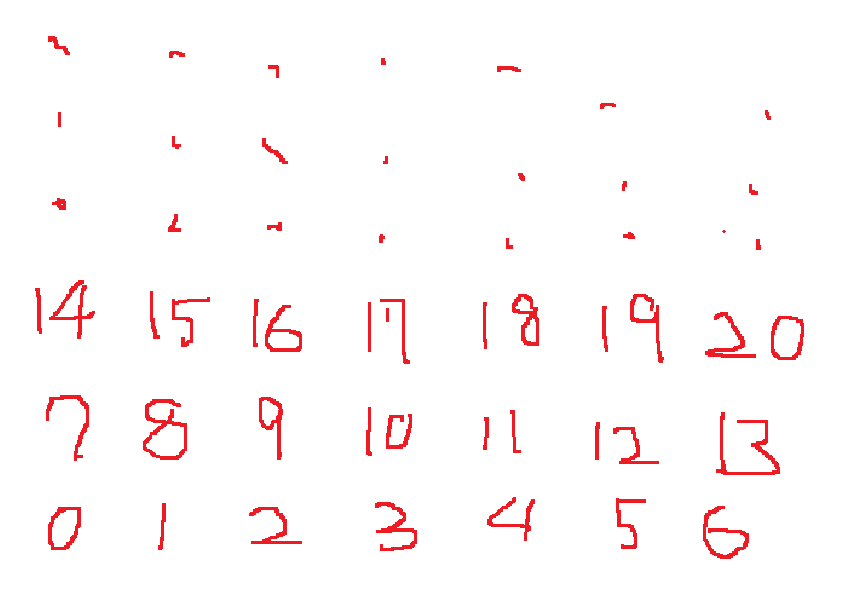 14 15 16 17 18 19 20
7 8 9 10 11 12 13
0 1 2 3 4 5 6